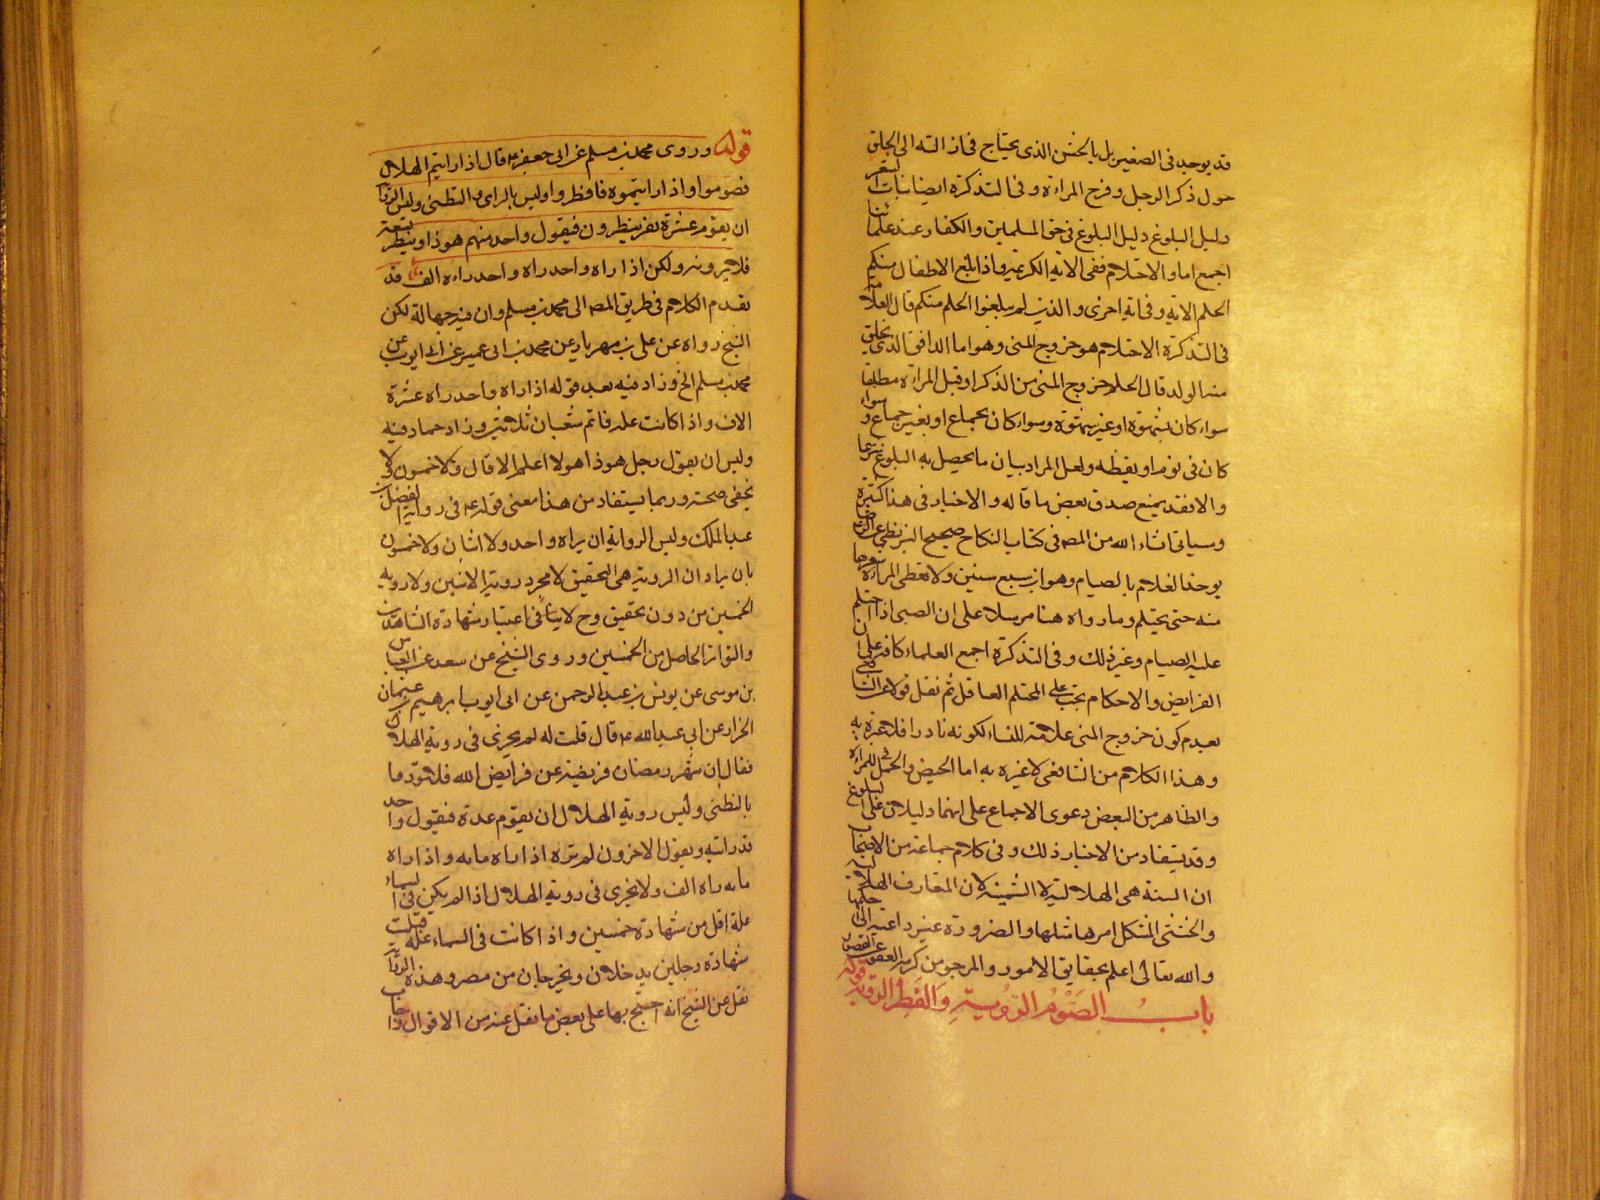 قد يوجد في الصغير بل بالخشن الذي يحتاج في ازالته الى الحلق
حول ذكر الرجل وفرج المراة وفي التذكرة ايضا نبات الشعر
دليل البلوغ في حق المسلمين والكفار وعند علمائنا
اجمع اما والاحتلام ففي الاية الكريمة واذا بلغ الاطفال منكم
الحلم الاية وفي اية اخرى والذين لم يبلغوا الحلم منكم قال العلامة
في التذكرة الاحتلام هو خروج المني وهو الماء الدافق الذي يخلق
منه الولد قال الحلم خروج المني من الذكر او قبل المراة مطلقا
سواء كان بشهوة او غير شهوة وسواء كان بجماع او بغير جماع وسواء
كان في نوم او يقظه ولعل المراد بيان ما يحصل به البلوغ شرعا
والا فقد يمنع صدق بعض ما قاله والاخبار في هذا كثيرة
وسياتي انشاء الله من المص في كتاب النكاح صحيح البزنطي عن الرضا
يوخذ الغلام بالصيام وهو ابن سبع سنين ولا تغطي المراة شعرها
منه حتى يحتلم وما رواه هنا مرسلا على ان الصبي اذا احتلم
عليه الصيام وغير ذلك وفي التذكرة اجمع العلماء كافة على ان
الفرايض والاحكام تجب على المحتلم العاقل ثم نقل قولا عن الشافعي
بعدم كون خروج المني علامة للنساء لكونه نادرا فلا عبرة به
وهذا الكلام من الشافعي لا عبرة به اما الحيض والحمل للمراة
والظاهر من البعض دعوى الاجماع على انهما دليلان على البلوغ
وقد يستفاد من الاخبار ذلك وفي كلام جماعة من الاصحاب
ان السنة هي الهلالية لا الشمسية لان المتعارف الهلالية
والخنثى المشكل امرها مثلها والضرورة غير داعية الى
والله تعالى اعلم بحقايق الامور والمرجو من كرمه العفو عن القصور
باب الصوم للروية والفطر للروية قوله
قوله وروى محمد بن مسلم عن ابي جعفر ع قال اذا رايتم الهلال
فصوموا واذا رايتموه فافطروا وليس بالراي والتظني وليس الرؤية
ان يقوم عشرة نفر ينظرون فيقول واحد منهم هوذا وينظر تسعة
فلا يرونه ولكن اذا راه واحد راه واحد راه الف قد
تقدم الكلام في طريق المص الى محمد بن مسلم وان فيه جهالة لكن
الشيخ رواه عن علي بن مهزيار عن محمد بن ابي عمير عن ابي ايوب عن
محمد بن مسلم الخ وزاد فيه بعد قوله اذا راه واحد راه عشرة
الاف واذا كانت علة فاتم شعبان ثلاثين وزاد حماد فيه
وليس ان يقول رجل هوذا هو لا اعلم الا قال ولا خمسون ولا
يخفى صحته وربما يستفاد من هذا معنى قوله ع في رواية الفضل بن
عبد الملك وليس الرواية ان يراه واحد ولا اثنان ولا خمسون
بان يراد ان الروية هي التحقيق لا مجرد روية الاثنين ولا روية
الخمسين من دون تحقيق وح لا ينافي اعتبار شهادة الشاهدين
والتواتر الحاصل من الخمسين وروى الشيخ عن سعد عن العباس
بن موسى عن يونس بن عبد الرحمن عن ابي ايوب ابرهيم بن عثمان
الخزاز عن ابي عبد الله ع قال قلت له لم يجزي في روية الهلال
فقال ان شهر رمضان فريضة من فرايض الله فلا تؤدوا
بالتظني وليس روية الهلال ان يقوم عدة فيقول واحد
قد رايته ويقول الاخرون لم نره اذا راه مايه واذا راه
مايه راه الف ولا يجزي في روية الهلال اذا لم يكن في السماء
علة اقل من شهادة خمسين واذا كانت في السماء علة قبلت
شهادة رجلين يدخلان ويخرجان من مصر وهذه الرواية
نقل عن الشيخ انه احتج بها على بعض ما نقل عنه من الاقوال واجاب